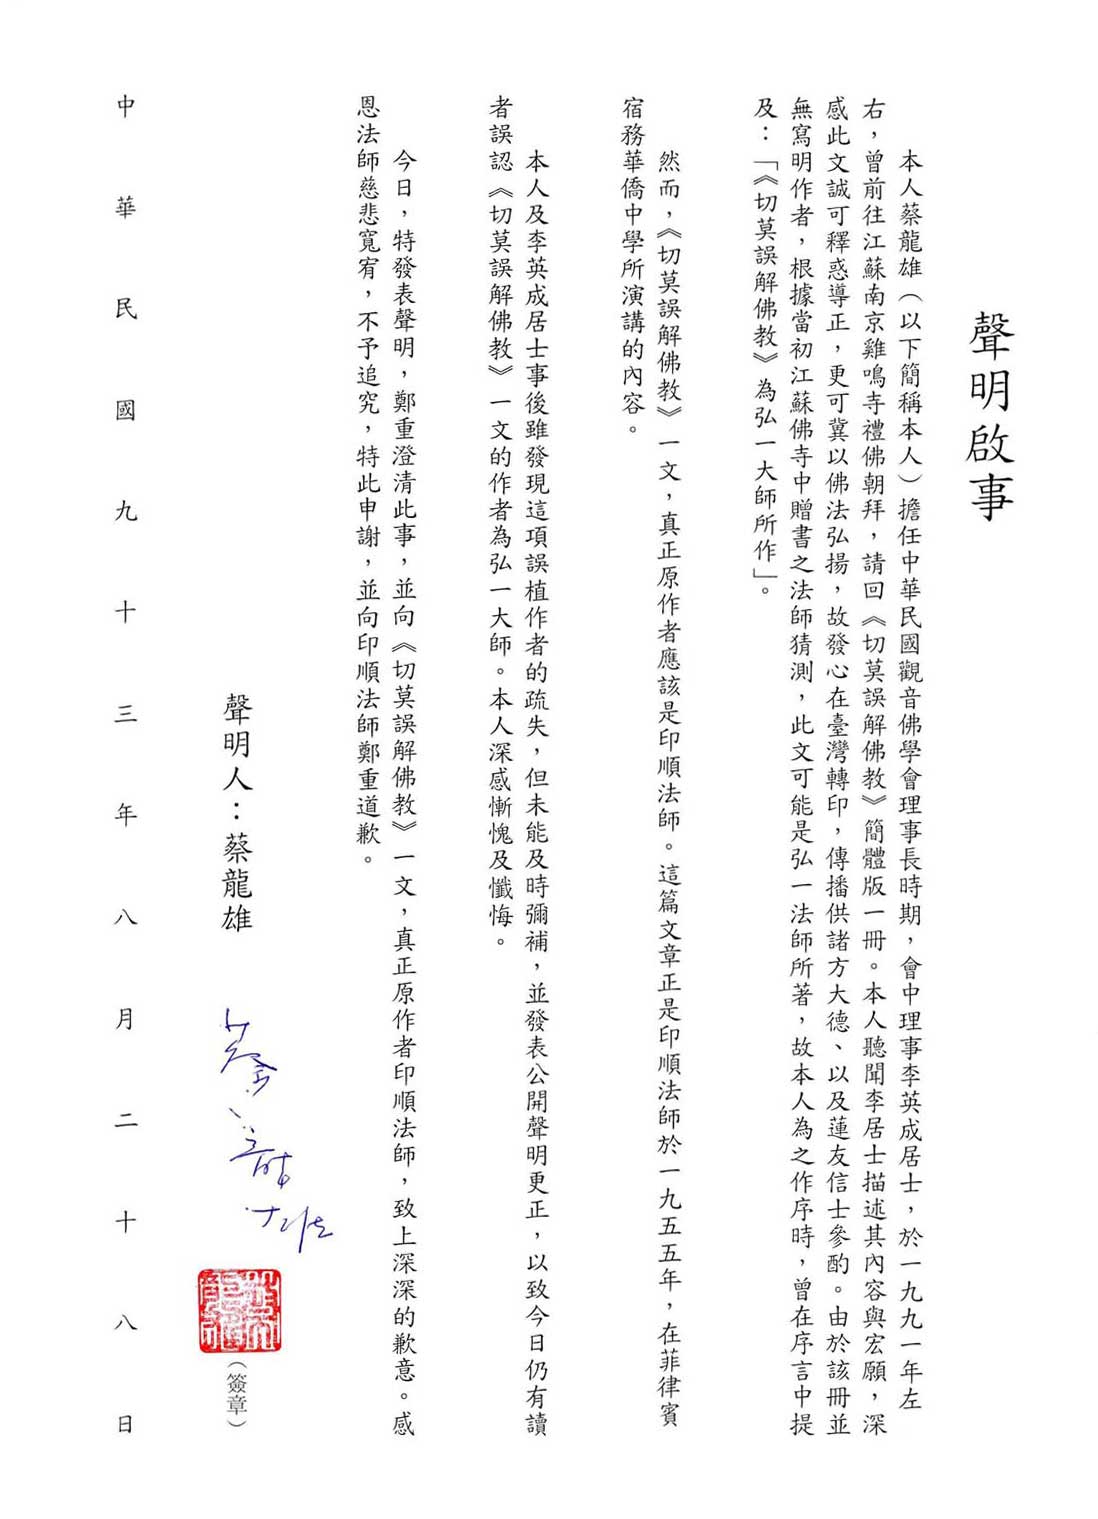 聲明啟事
本人蔡龍雄（以下簡稱本人）擔任中華民國觀音佛學會理事長時期，會中理事李英成居士，於一九九一年左
右，曾前往江蘇南京雞鳴寺禮佛朝拜，請回《切莫誤解佛教》簡體版一冊。本人聽聞李居士描述其內容與宏願，深
感此文誠可釋惑導正，更可冀以佛法弘揚，故發心在臺灣轉印，傳播供諸方大德、以及蓮友信士參酌。由於該冊並
無寫明作者，根據當初江蘇佛寺中贈書之法師猜測，此文可能是弘一法師所著，故本人為之作序時，曾在序言中提
及：「《切莫誤解佛教》為弘一大師所作」。
然而，《切莫誤解佛教》一文，真正原作者應該是印順法師。這篇文章正是印順法師於一九五五年，在菲律賓
宿務華僑中學所演講的內容。
本人及李英成居士事後雖發現這項誤植作者的疏失，但未能及時彌補，並發表公開聲明更正，以致今日仍有讀
者誤認《切莫誤解佛教》一文的作者為弘一大師。本人深感慚愧及懺悔。
今日，特發表聲明，鄭重澄清此事，並向《切莫誤解佛教》一文，真正原作者印順法師，致上深深的歉意。感
恩法師慈悲寬宥，不予追究，特此申謝，並向印順法師鄭重道歉。
聲明人：蔡龍雄 蔡龍雄（簽章）
中華民國九十三年八月二十八日